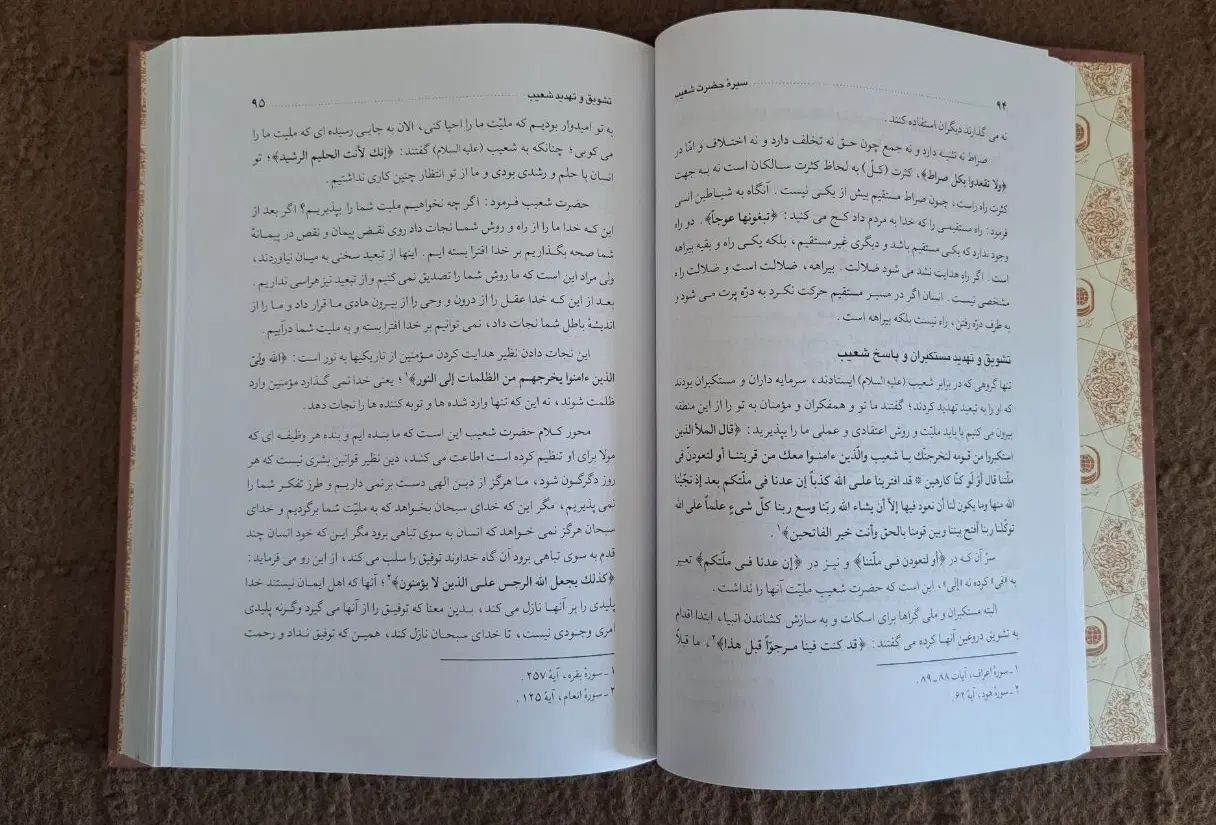 ۹۴ سیرهٔ حضرت شعیب
نه می گذارند دیگران استفاده کنند .
صراط نه تثنیه دارد و نه جمع چون حق نه تخلف دارد و نه اختلاف و امّا در
﴿ولا تقعدوا بكل صراط﴾، کثرت (کلّ) به لحاظ کثرت سالکان است نه به جهت
کثرت راه راست، چون صراط مستقیم بیش از یکی نیست . آنگاه به شیاطین انسی
فرمود: راه مستقیمی را که خدا به مردم داد کج می کنید : ﴿تبغونها عوجاً﴾ . دو راه
وجود ندارد که یکی مستقیم باشد و دیگری غیر مستقیم، بلکه یکی راه و بقیه بیراهه
است . اگر راه هدایت نشد می شود ضلالت . بیراهه، ضلالت است و ضلالت راه
مشخصی نیست . انسان اگر در مسیر مستقیم حرکت نکرد به درّه پرت می شود و
به طرف درّه رفتن، راه نیست بلکه بیراهه است .
تشویق و تهدید مستکبران و پاسخ شعیب
تنها گروهی که در برابر شعیب (علیه السلام) ایستادند، سرمایه داران و مستکبران بودند
که او را به تبعید تهدید کردند؛ گفتند ما تو و همفکران و مؤمنان به تو را از این منطقه
بیرون می کنیم یا باید ملیّت و روش اعتقادی و عملی ما را بپذیرید : ﴿قال الملأ الذين
استكبروا من قومه لنخرجنّك يا شعيب والّذين ءامنوا معك من قريتنا أو لتعودنّ في
ملّتنا قال أوَ لو كنّا كارهين * قد افترينا على الله كذباً إن عدنا في ملّتكم بعد إذ نجّينا
الله منها وما يكون لنا أن نعود فيها إلاّ أن يشاء الله ربّنا وسع ربنا كلّ شيءٍ علماً على الله
توكّلنا ربنا أفتح بيننا وبين قومنا بالحق وأنت خير الفاتحين﴾۱ .
سرّ آن که در ﴿أو لتعودن في ملّتنا﴾ و نیز در ﴿إن عدنا في ملّتكم﴾ تعبیر
به «فی» کرده نه «إلی»، این است که حضرت شعیب ملیّت آنها را نداشت .
البته مستکبران و ملی گراها برای اسکات و به سازش کشاندن انبیا، ابتدا اقدام
به تشویق دروغین آنها کرده می گفتند : ﴿قد كنت فينا مرجوّاً قبل هذا﴾۲، ما قبلاً
۱ ـ سورهٔ اعراف، آیات ۸۸ ـ ۸۹ .
۲ ـ سورهٔ هود، آیهٔ ۶۲.
تشویق و تهدید شعیب ۹۵
به تو امیدوار بودیم که ملیّت ما را احیا کنی، الان به جایی رسیده ای که ملیت ما را
می کوبی؛ چنانکه به شعیب (علیه السلام) گفتند : ﴿إنك لأنت الحليم الرشيد﴾؛ تو
انسان با حلم و رشدی بودی و ما از تو انتظار چنین کاری نداشتیم .
حضرت شعیب فرمود : اگر چه نخواهیم ملیت شما را بپذیریم؟ اگر بعد از
این که خدا ما را از راه و روش شما نجات داد روی نقض پیمان و نقص در پیمانهٔ
شما صحه بگذاریم بر خدا افترا بسته ایم . اینها از تبعید سخنی به میان نیاوردند،
ولی مراد این است که ما روش شما را تصدیق نمی کنیم و از تبعید نیز هراسی نداریم .
بعد از این که خدا عقل را از درون و وحی را از بیرون هادی ما قرار داد و ما را از
اندیشهٔ باطل شما نجات داد، نمی توانیم بر خدا افترا بسته و به ملیت شما درآییم .
این نجات دادن نظیر هدایت کردن مؤمنین از تاریکیها به نور است : ﴿الله وليّ
الذين ءامنوا يخرجهم من الظلمات إلى النور﴾۱؛ یعنی خدا نمی گذارد مؤمنین وارد
ظلمت شوند، نه این که تنها وارد شده ها و توبه کننده ها را نجات دهد .
محور کلام حضرت شعیب این است که ما بنده ایم و بنده هر وظیفه ای که
مولا برای او تنظیم کرده است اطاعت می کند، دین نظیر قوانین بشری نیست که هر
روز دگرگون شود، ما هرگز از دین الهی دست بر نمی داریم و طرز تفکر شما را
نمی پذیریم، مگر این که خدای سبحان بخواهد که به ملیّت شما برگردیم و خدای
سبحان هرگز نمی خواهد که انسان به سوی تباهی برود مگر این که خود انسان چند
قدم به سوی تباهی برود آن گاه خداوند توفیق را سلب می کند، از این رو می فرماید :
﴿كذلك يجعل الله الرجس على الذين لا يؤمنون﴾۲؛ آنها که اهل ایمان نیستند خدا
پلیدی را بر آنها نازل می کند، بدین معنا که توفیق را از آنها می گیرد وگرنه پلیدی
امری وجودی نیست، تا خدای سبحان نازل کند، همین که توفیق نداد و رحمت
۱ ـ سورهٔ بقره، آیهٔ ۲۵۷ .
۲ ـ سورهٔ انعام، آیهٔ ۱۲۵ .